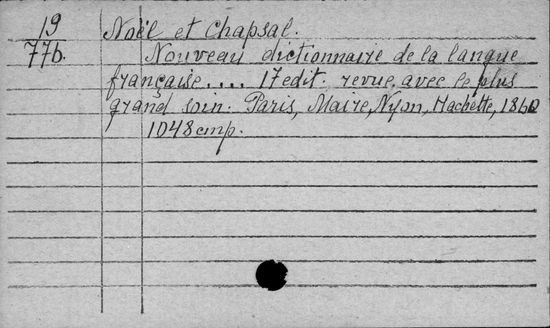 19 Noël et Chapsal.
77b. Nouveau dictionnaire de la langue
française.... 17 edit. revue avec le plus
grand soin. Paris, Maire, Nyon, Hachette, 1860
1048 cmp.